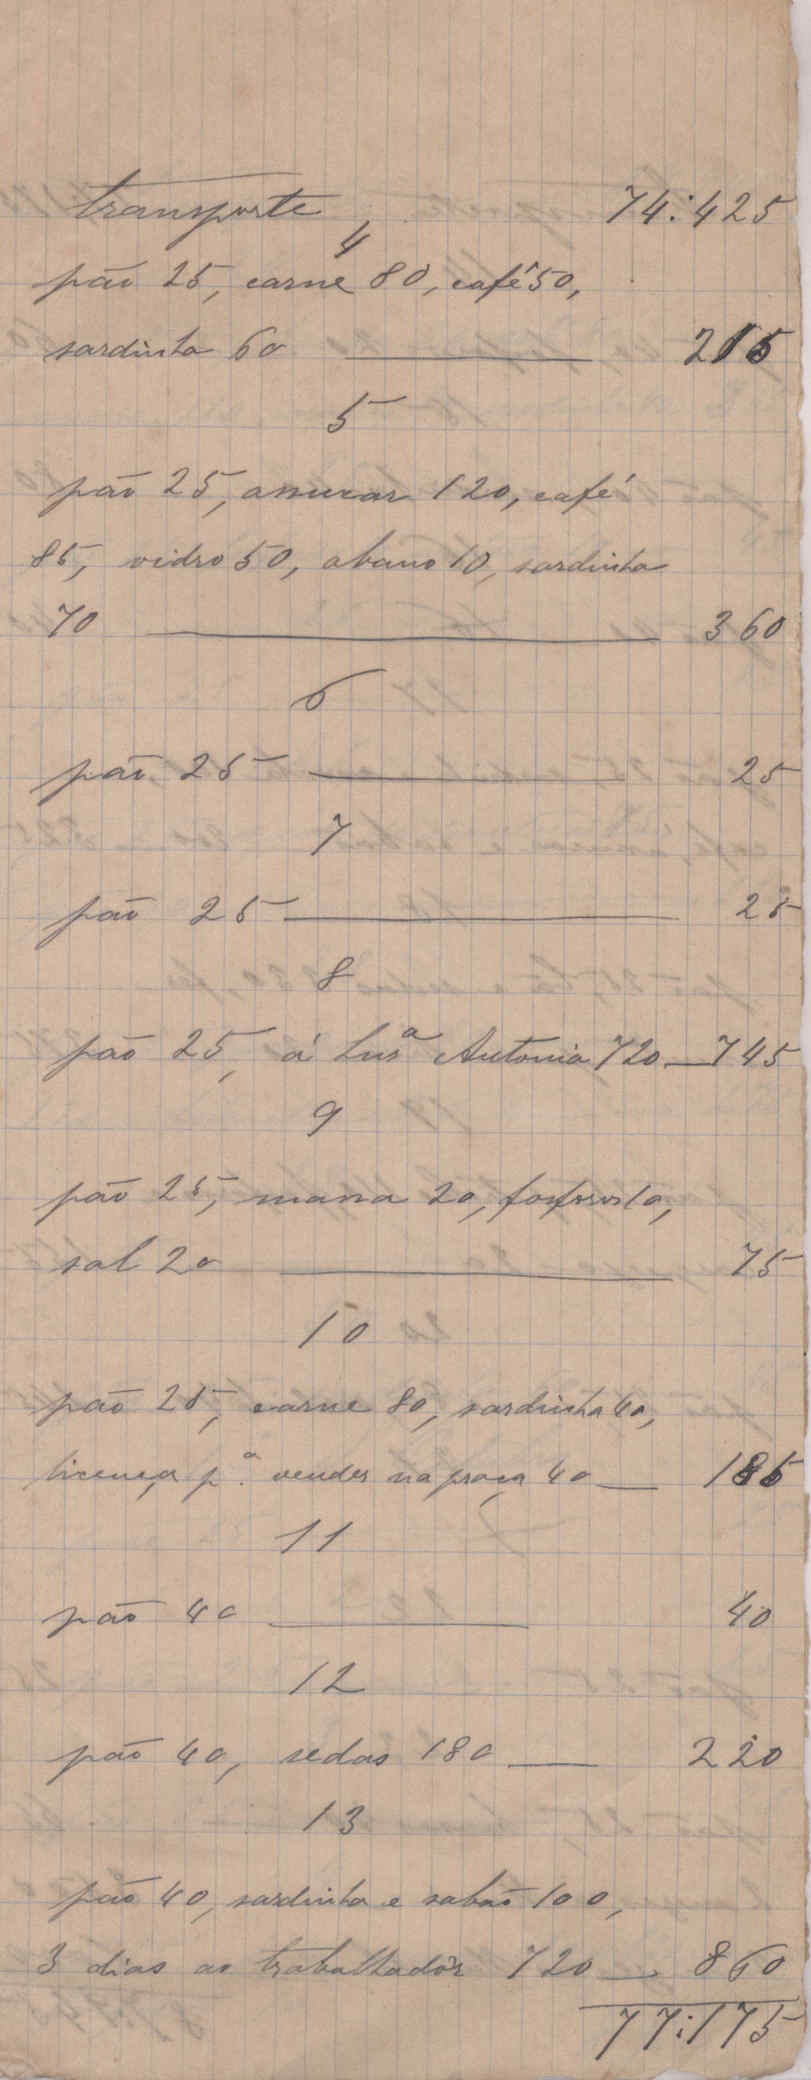 transporte 74:425
4
pão 25, carne 80, café 50,
sardinha 60 215
5
pão 25, assucar 120, café
85, vidro 50, abano 10, sardinha
70 360
6
pão 25 25
7
pão 25 25
8
pão 25, á Lusª Antonia 720 745
9
pão 25, massa 20, fosforos 10,
sal 20 75
10
pão 25, carne 80, sardinha 40,
licença p.ª vender na praça 40 185
11
pão 40 40
12
pão 40, sedas 180 220
13
pão 40, sardinha e sabão 100,
3 dias ao trabalhador 720 860
77:175